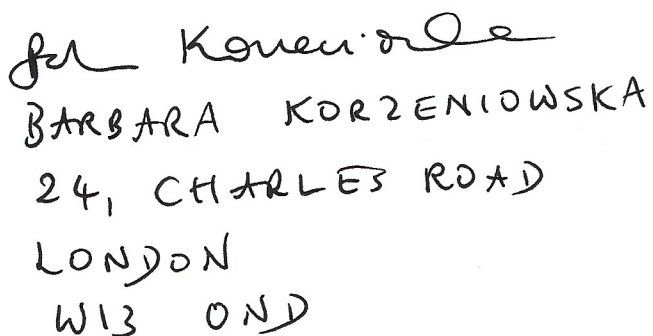 BARBARA KORZENIOWSKA
24, CHARLES ROAD
LONDON
W13 0ND